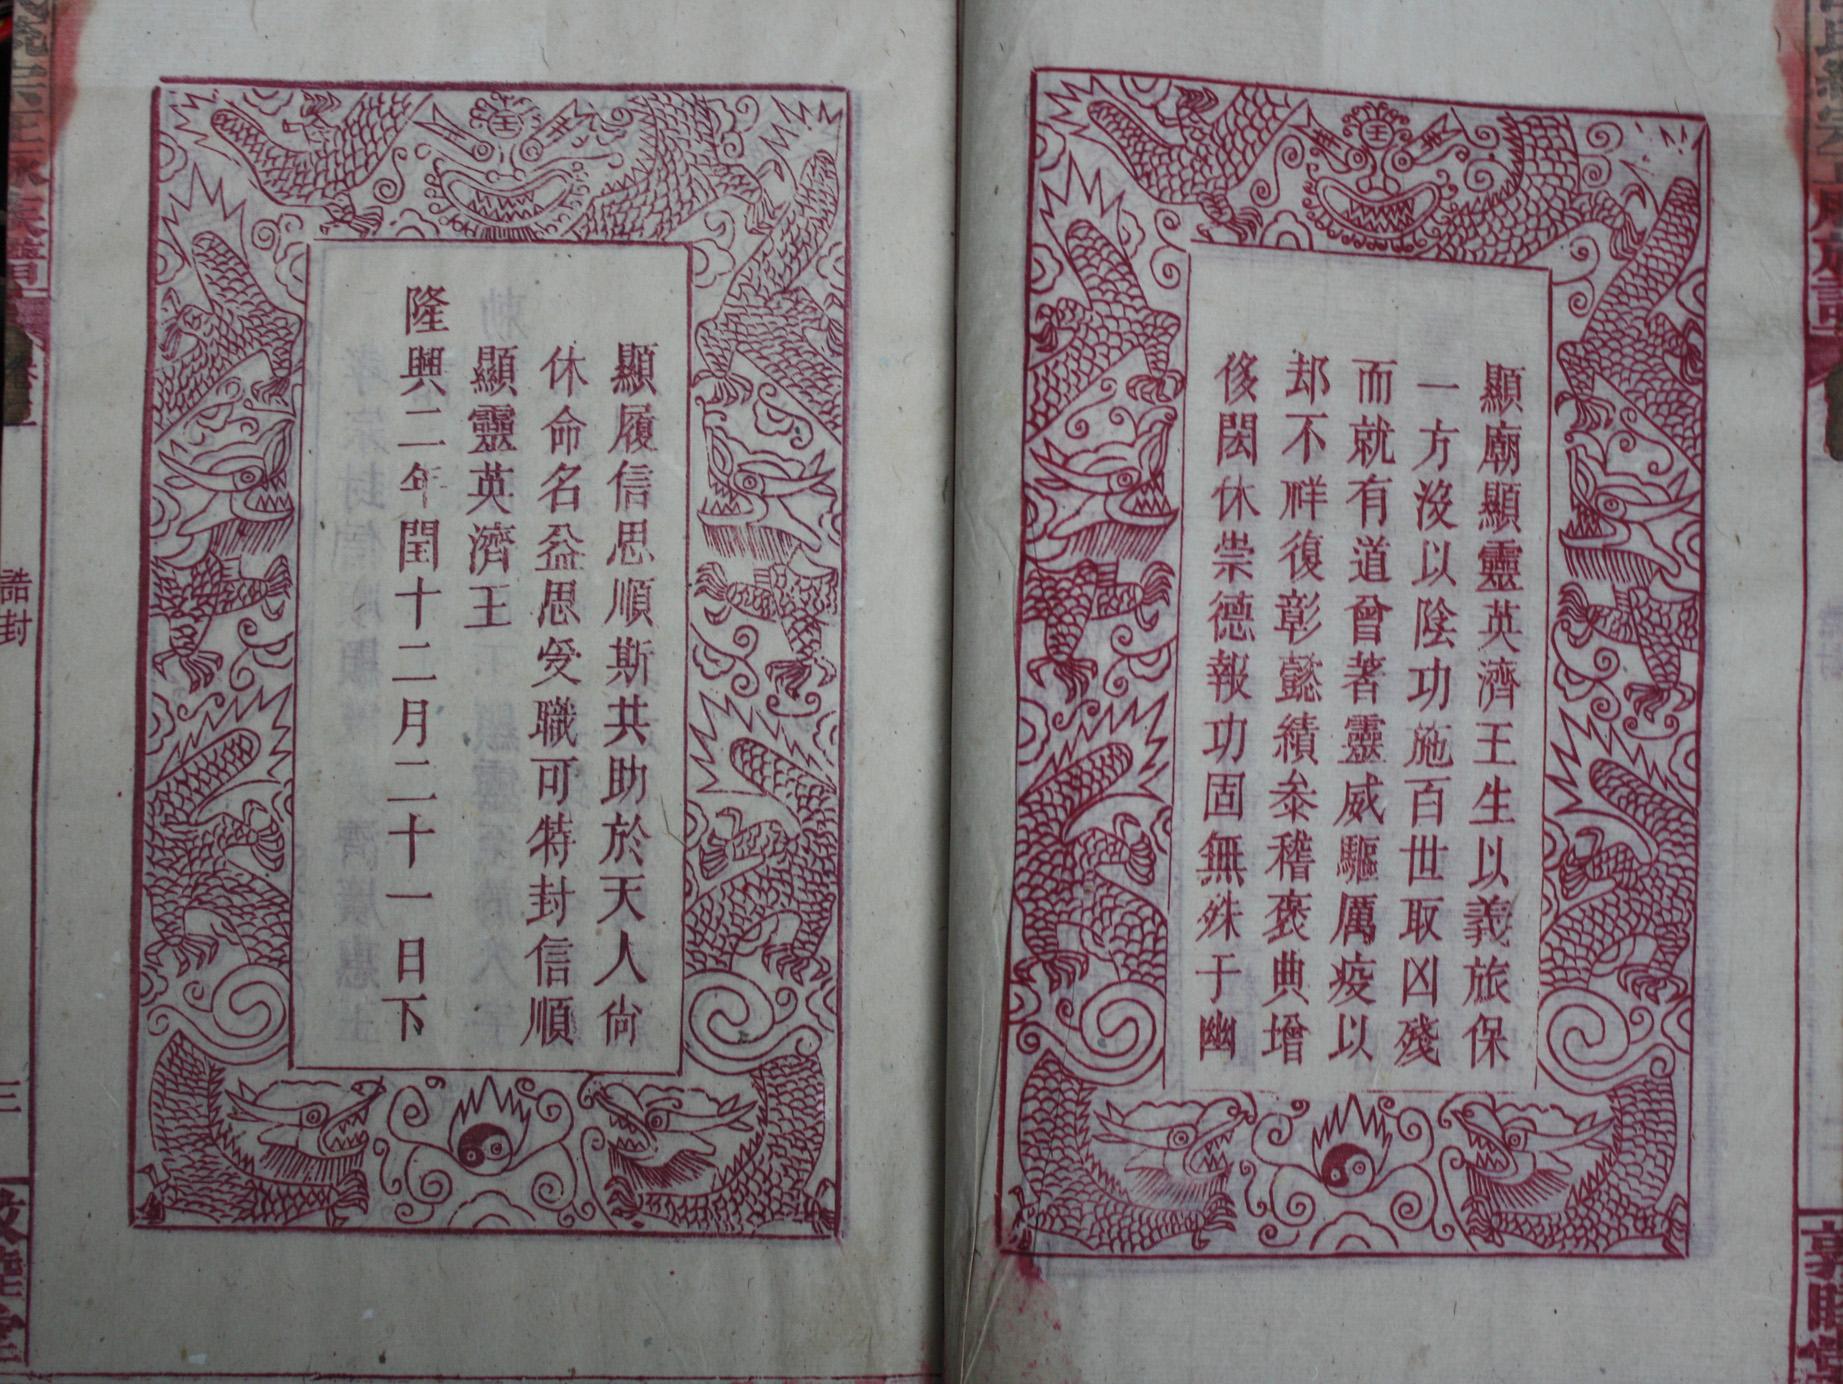 顯廟顯靈英濟王生以義旅保
一方沒以陰功施百世取凶殘
而就有道曾著靈威驅厲疫以
却不祥復彰懿績叅稽褒典增
侈閎休崇德報功固無殊于幽
顯履信思順斯共助於天人尙
休命名益思受職可特封信順
顯靈英濟王
隆興二年閏十二月二十一日下
誥封
三
敦睦堂